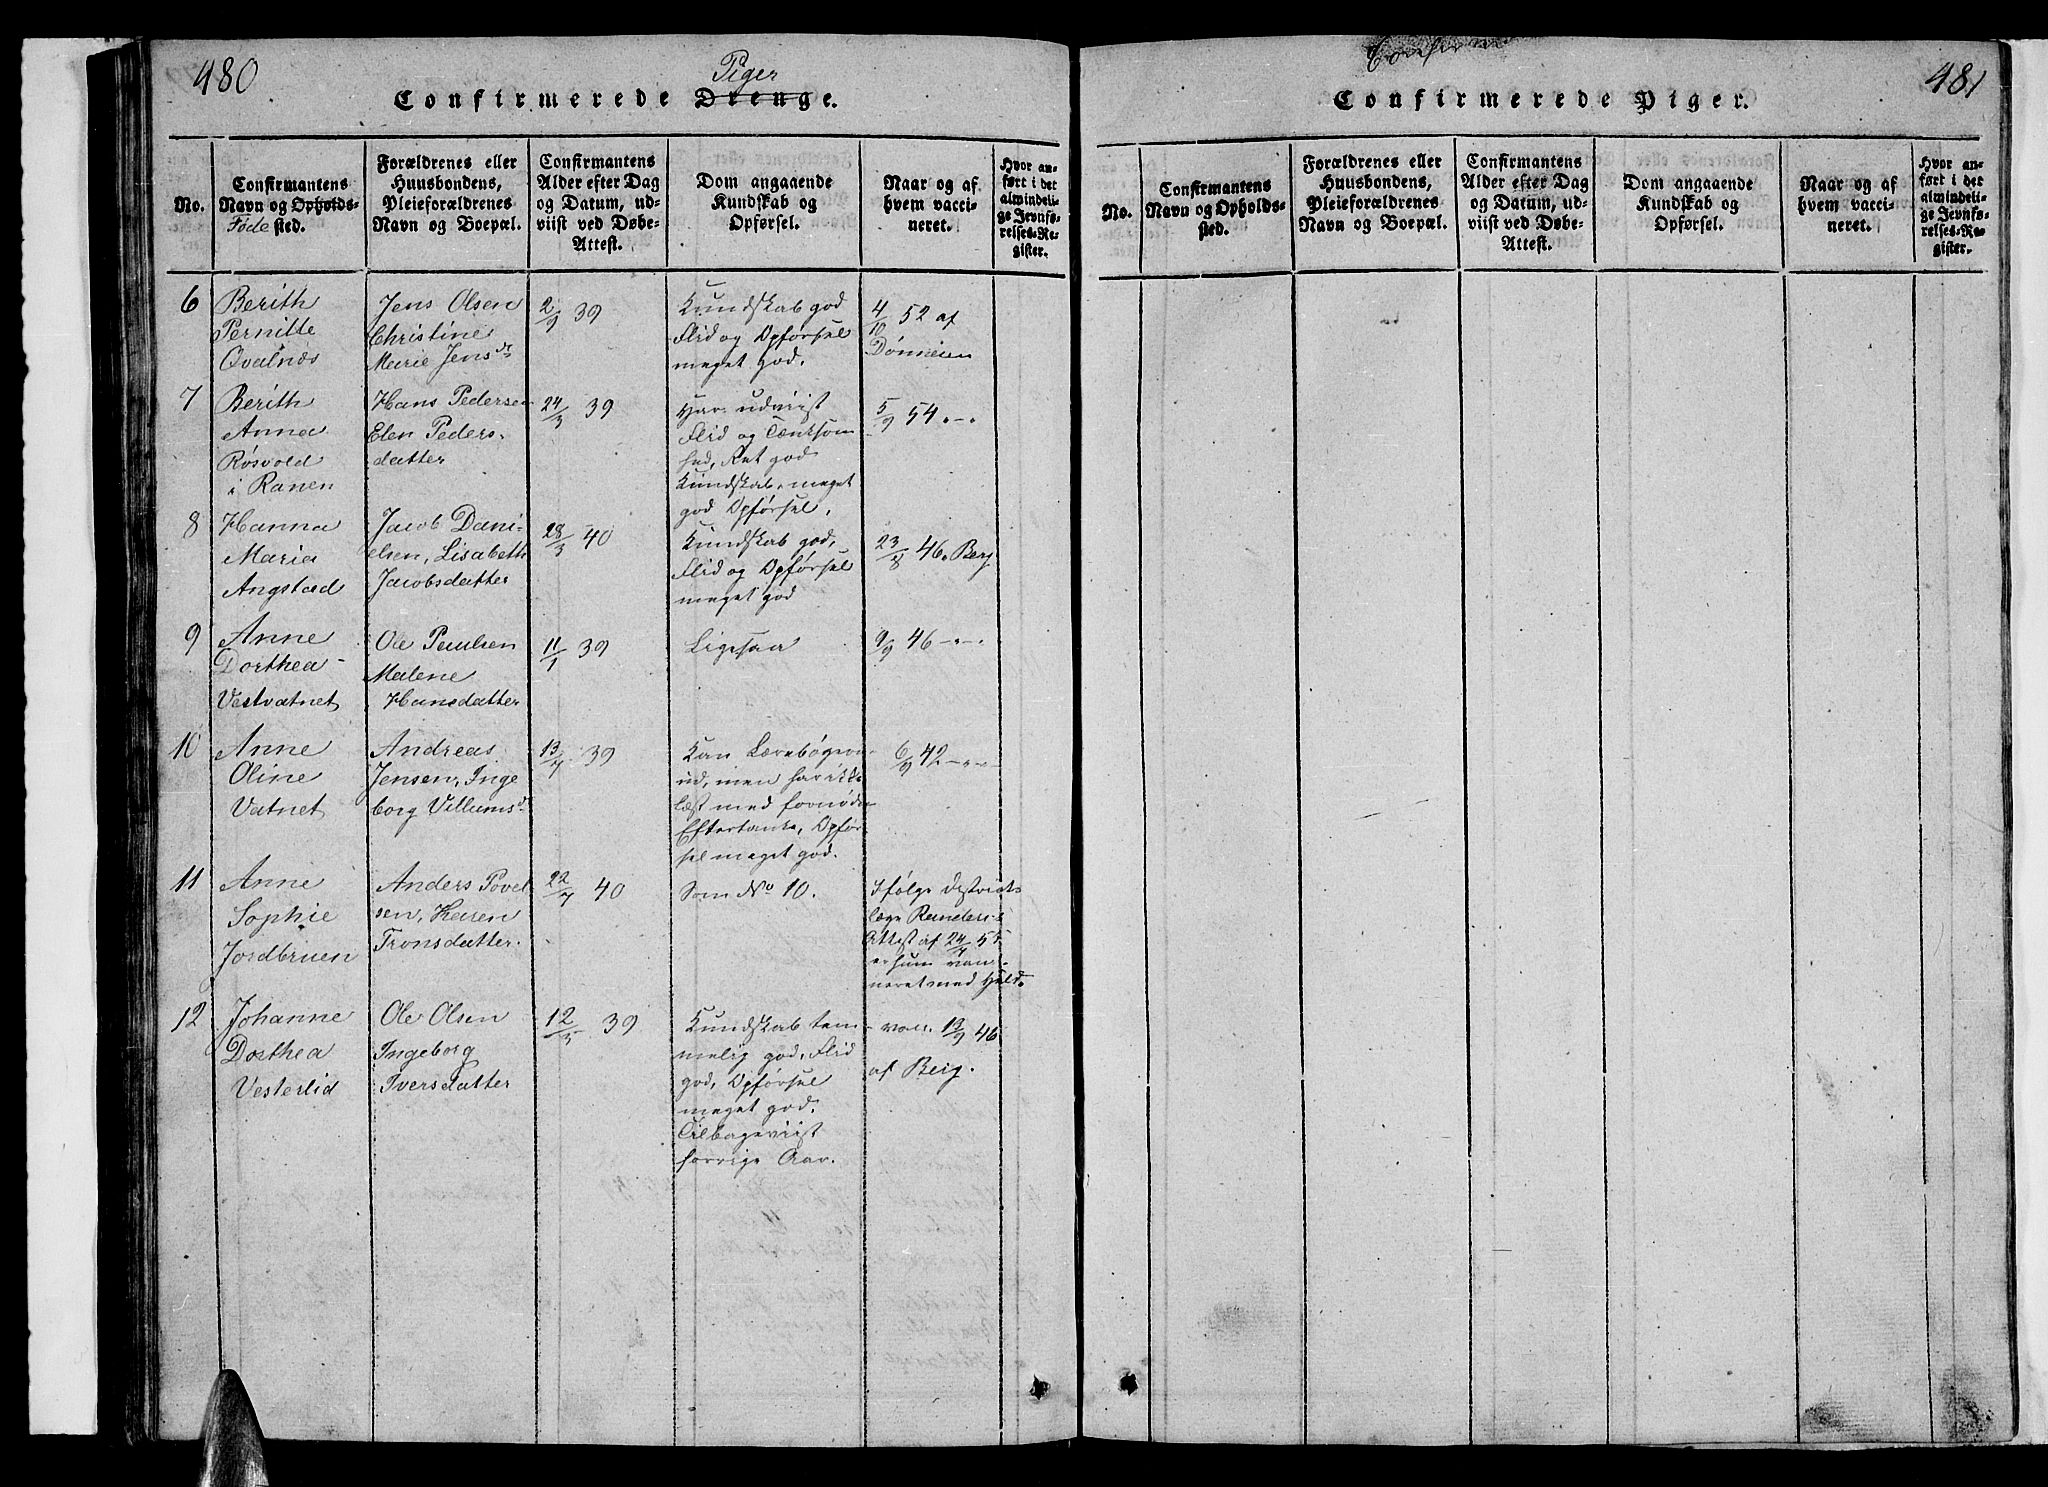 480
Piger
Confirmerede Drenge.
No.
Confirmantens
Navn og Opholds-
Föde sted.
Forældrenes eller
Huusbondens,
Pleieforældrenes
Navn og Boepæl.
Confirmantens
Alder efter Dag
og Datum, ud-
viist ved Døbe-
Attest.
Dom angaaende
Kundskab og
Opførsel.
Naar og af
hvem vacci-
neret.
Hvor an-
ført i det
almindeli-
ge Jevnfø-
relses-Re-
gister.
6
Berith
Pernille
Qvalnæs
Jens Olsen
Christine
Marie Jensdr
2/9 39
Kundskab god
Flid og Opførsel
meget god.
4/10 52 af
Dönneien
7
Berith
Anna
Røsvold
i Ranen
Hans Pedersen
Elen Peders-
datter
24/3 39
Har udviist
Flid og Tænksom
hed, Ret god
Kundskab, meget
god Opførsel.
5/9 54 -"-
8
Hanna
Maria
Angstad
Jacob Dani-
elsen, Lisabeth
Jacobsdatter
28/3 40
Kundskab god,
Flid og Opførsel
meget god
23/8 46. Berg
9
Anne
Dorthea
Vestvatnet
Ole Paulsen
Malene
Hansdatter
11/1 39
Ligesaa
9/9 46 -"-
10
Anne
Oline
Vatnet
Andreas
Jensen, Inge
borg Villumsd
13/7 39
Kan Lærebogen
ud, men har ikke
læst med fornøden
Eftertanke, Opfør-
sel meget god.
6/9 42 -"-
11
Anne
Sophie
Jordbruen
Anders Povel
sen, Karen
Tronsdatter
22/7 40
Som No 10.
Ifölge Destricts
læge Randers's
Attest af 24/4 55
er hun vaxi-
neret med Held.
12
Johanne
Dorthea
Vesterlid
Ole Olsen
Ingeborg
Iversdatter
12/5 39
Kundskab tem
melig god, Flid
god, Opførsel
meget god.
Tilbageviist
forrige Aar.
vac. 13/9 46
af Berg.
481
Confirmerede Piger.
No.
Confirmantens
Navn og Opholds-
sted.
Forældrenes eller
Huusbondens,
Pleieforældrenes
Navn og Boepæl.
Confirmantens
Alder efter Dag
og Datum, ud-
viist ved Døbe-
Attest.
Dom angaaende
Kundskab og
Opførsel.
Naar og af
hvem vacci-
neret.
Hvor an-
ført i det
almindeli-
ge Jevnfø-
relses-Re-
gister.